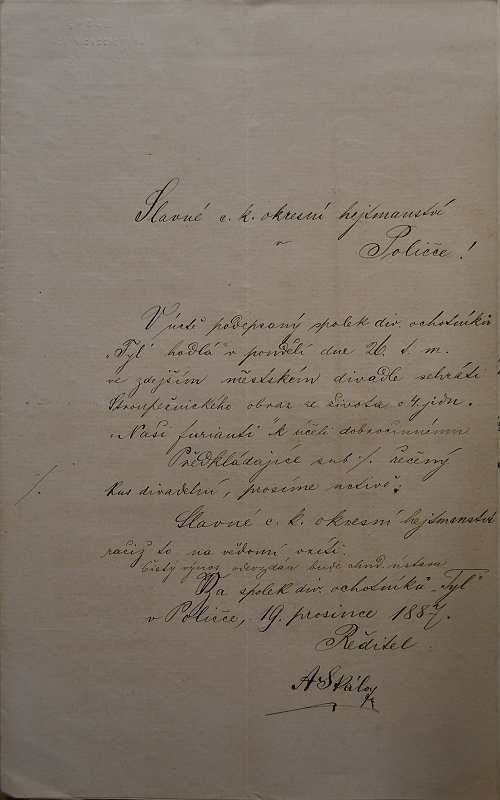 Slavné c. k. okresní hejtmanství
v
Poličce!
V úctě podepsaný spolek div. ochotníků
„Tyl" hodlá v pondělí dne 26. t. m.
ve zdejším městském divadle sehráti
Stroupežnického obraz ze života o 4 jedn.
„Naši furianti" k účeli dobročinnému
Předkládajíce sub ./. řečený
./.
kus divadelní, prosíme uctivě:
Slavné c. k. okresní hejtmanství
račiž to na vědomí vzíti.
Čistý výnos odevzdán bude chud. ústavu
Za spolek div. ochotníků „Tyl"
v Poličce, 19. prosince 1887.
Ředitel